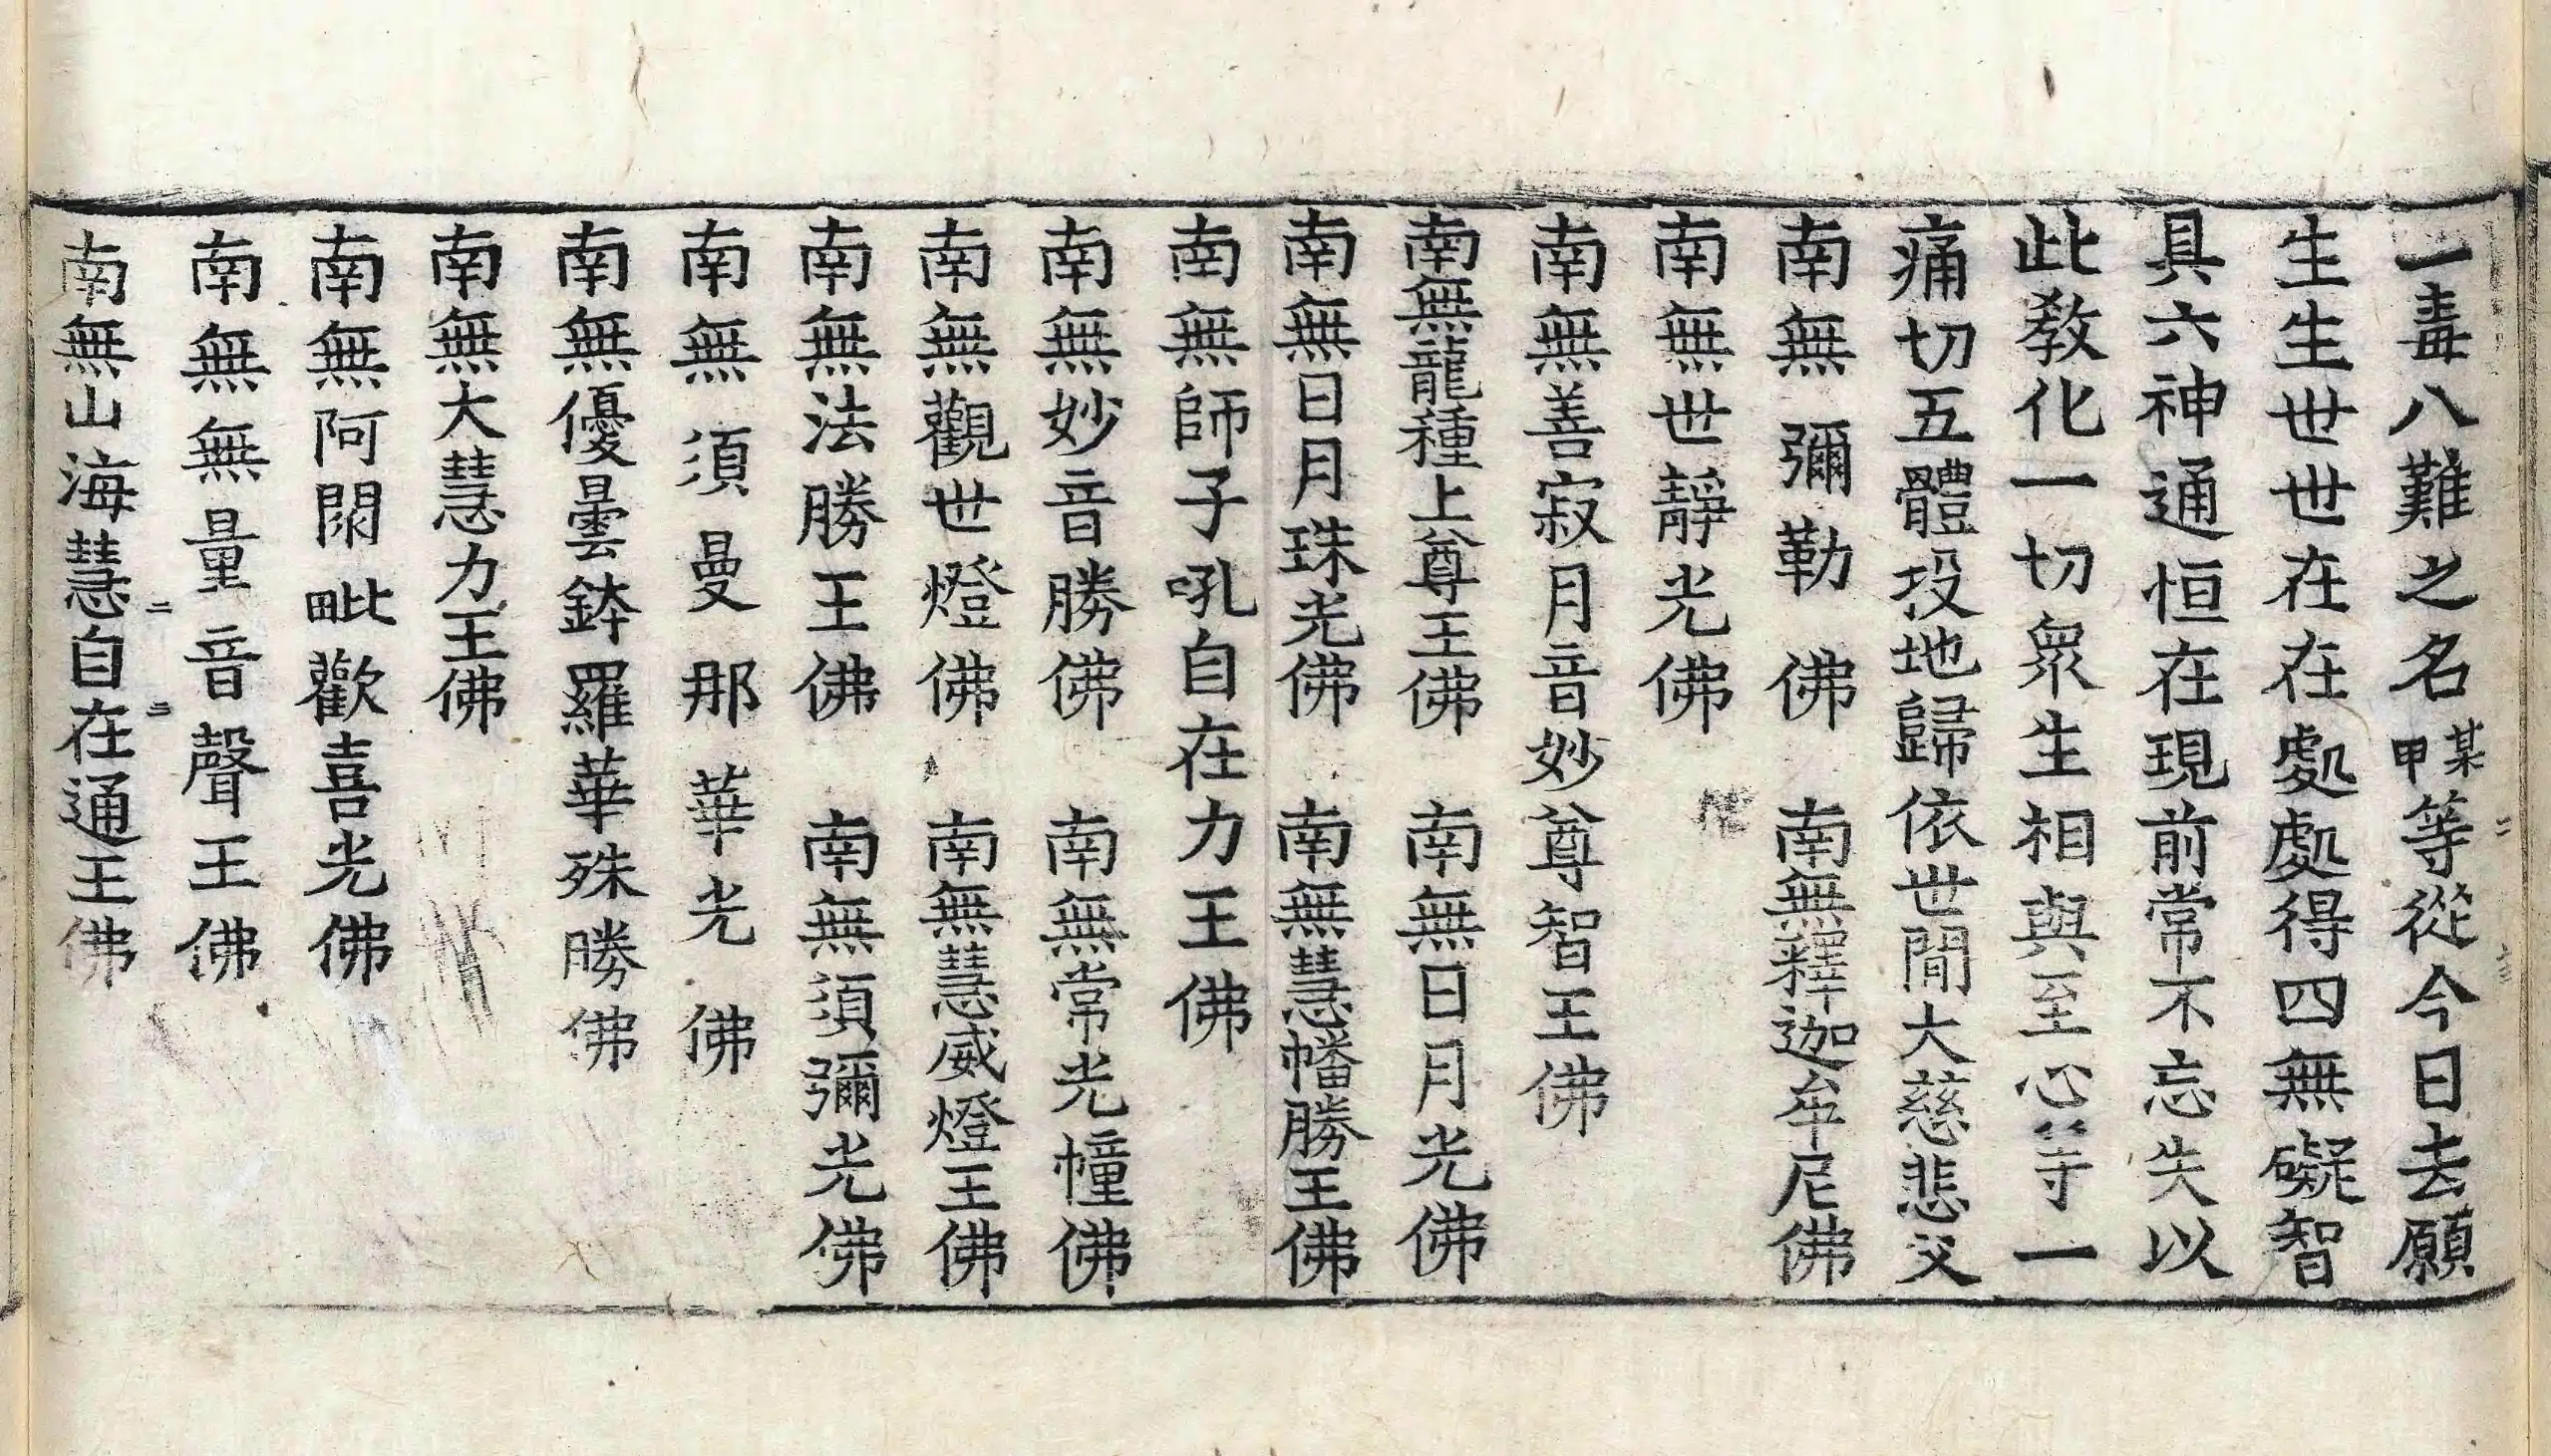 一毒八難之名某甲等從今日去願
生生世世在在處處得四無礙智
具六神通恒在現前常不忘失以
此教化一切衆生相與至心等一
痛切五體投地歸依世間大慈悲父
南無彌勒佛 南無釋迦牟尼佛
南無世靜光佛
南無善寂月音妙尊智王佛
南無龍種上尊王佛 南無日月光佛
南無日月珠光佛 南無慧幡勝王佛
南無師子吼自在力王佛
南無妙音勝佛 南無常光幢佛
南無觀世燈佛 南無慧威燈王佛
南無法勝王佛 南無須彌光佛
南無須曼那華光佛
南無優曇鉢羅華殊勝佛
南無大慧力王佛
南無阿閦毗歡喜光佛
南無無量音聲王佛
南無山海慧自在通王佛